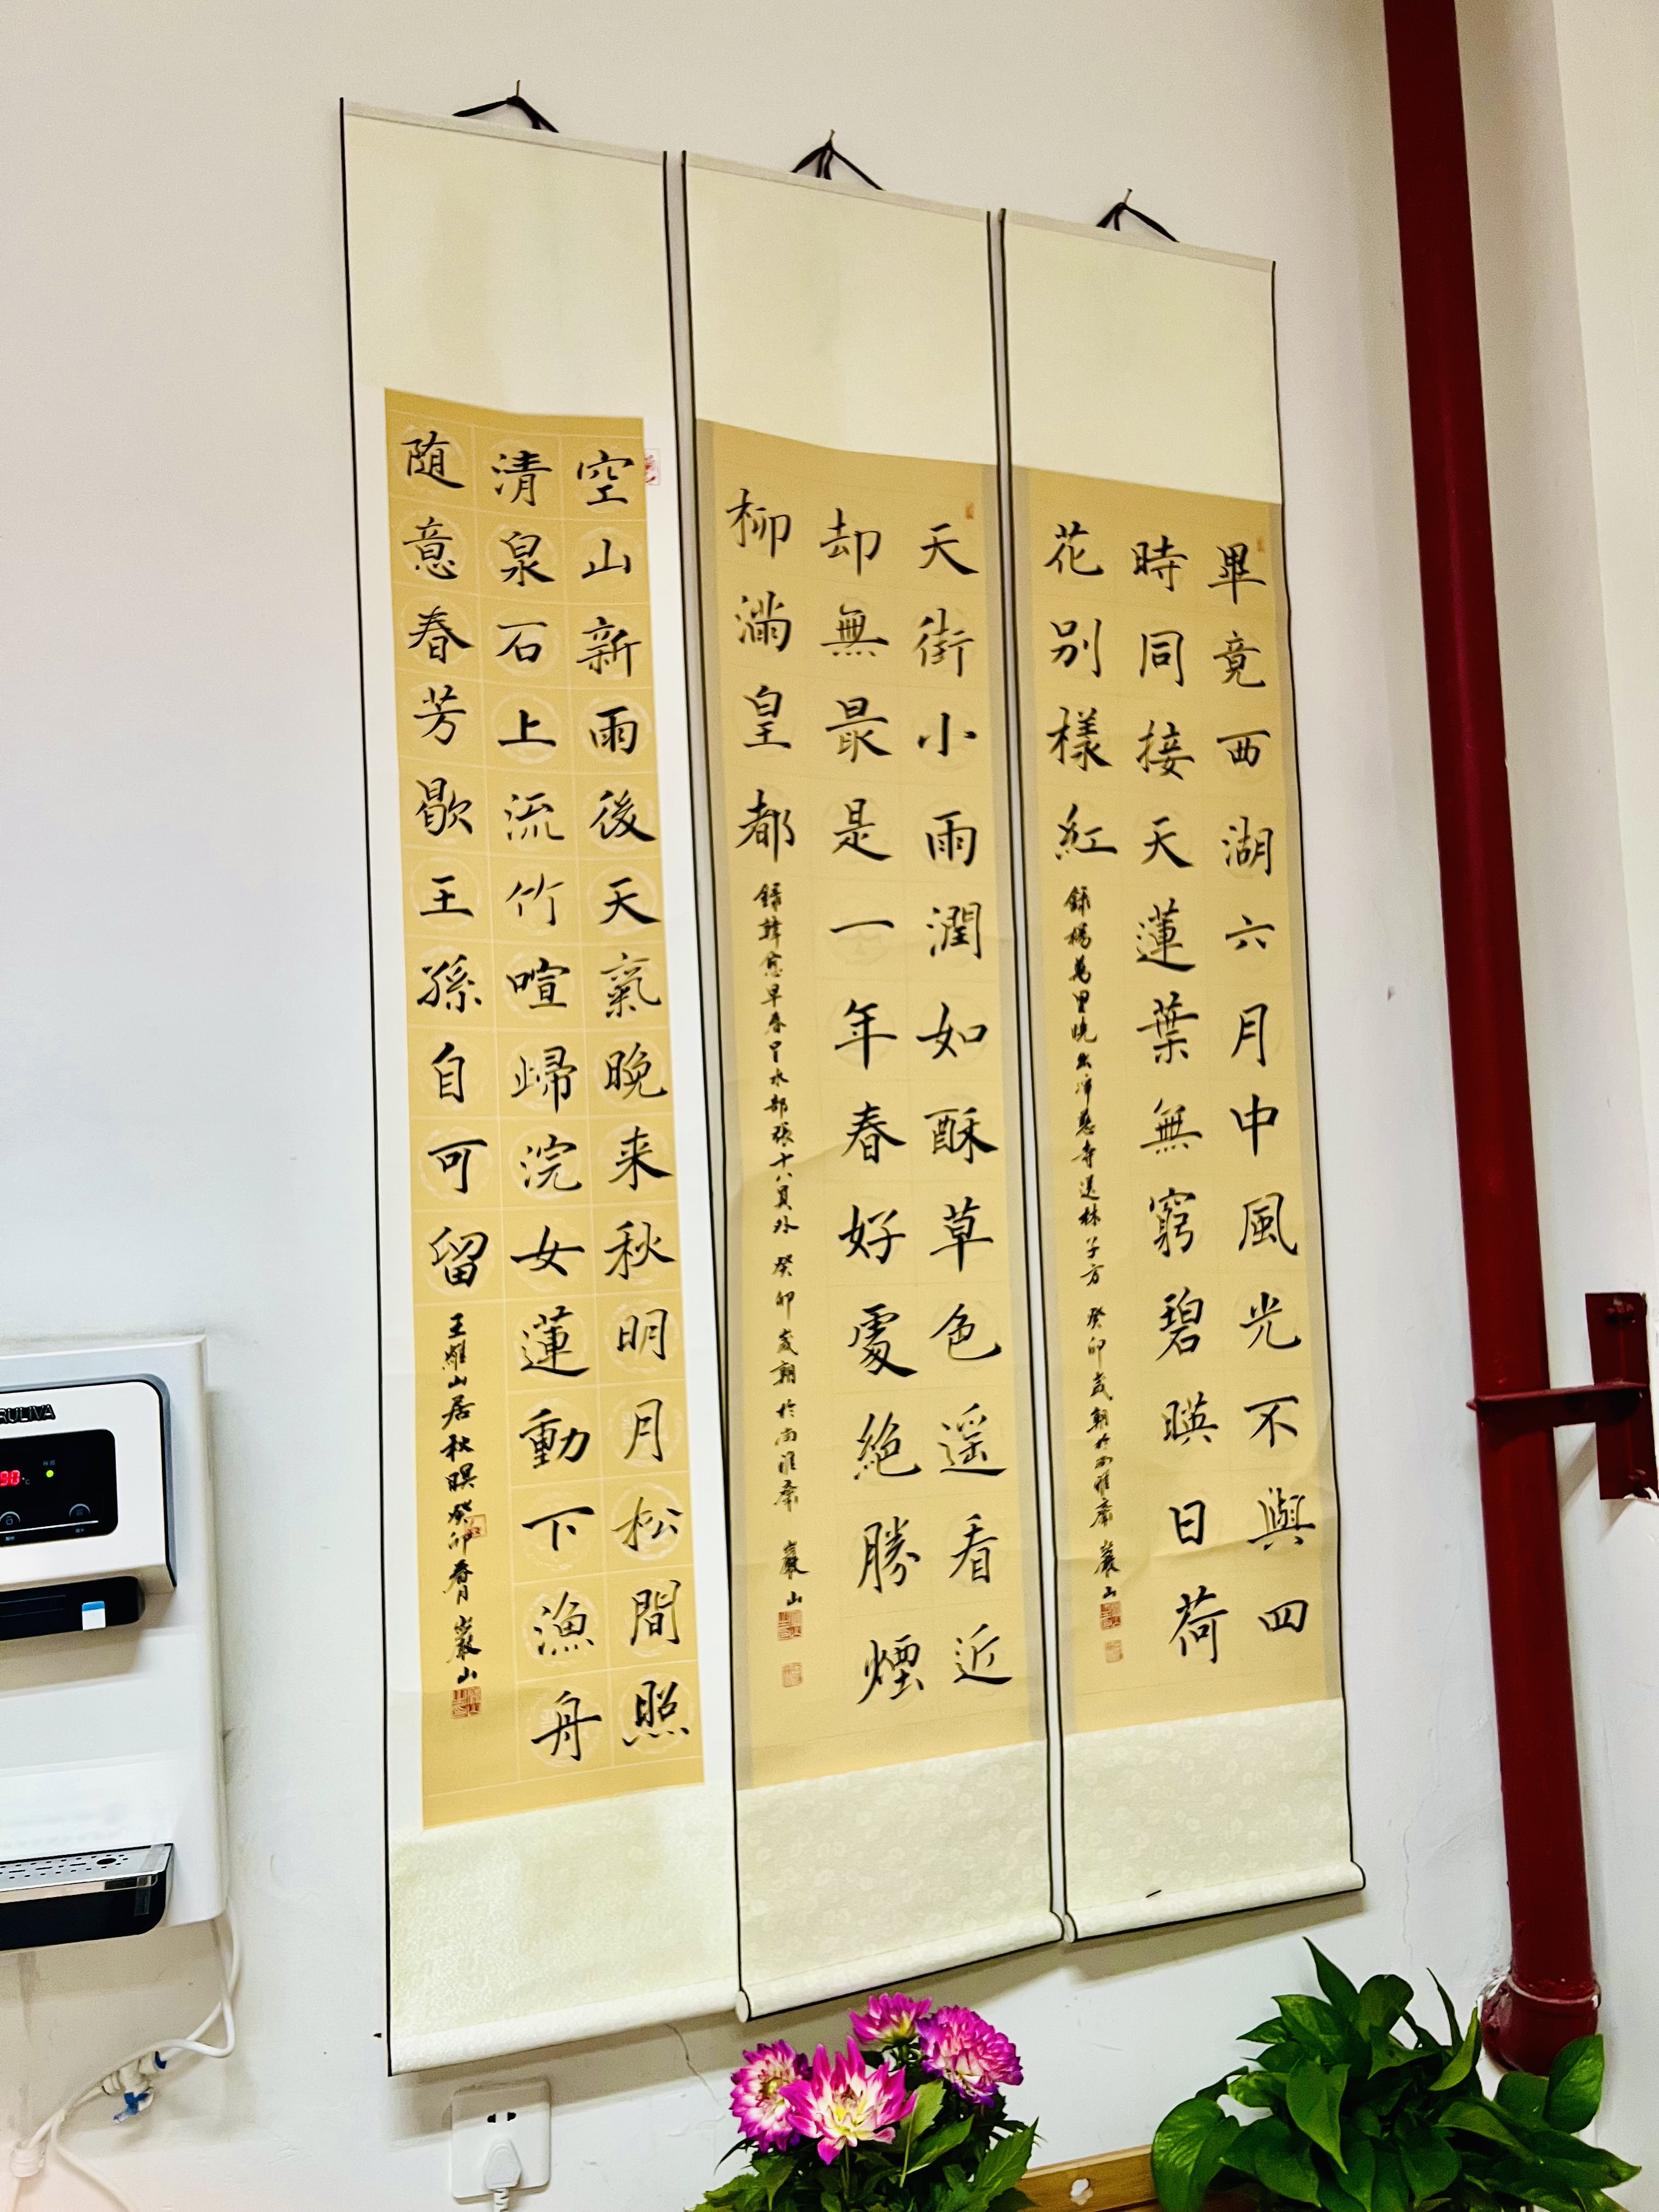 畢竟西湖六月中風光不與四
時同接天蓮葉無窮碧暎日荷
花别樣紅
録楊萬里曉出淨慈寺送林子方 癸卯歲朝於尚雅齋 巖山
天街小雨潤如酥草色遥看近
却無最是一年春好處絶勝煙
柳滿皇都
録韓愈早春呈水部張十八員外 癸卯歲朝於尚雅齋 巖山
空山新雨後天氣晚来秋明月松間照
清泉石上流竹喧歸浣女蓮動下漁舟
随意春芳歇王孫自可留
王維山居秋暝癸卯春月 巖山
RULIVA
90